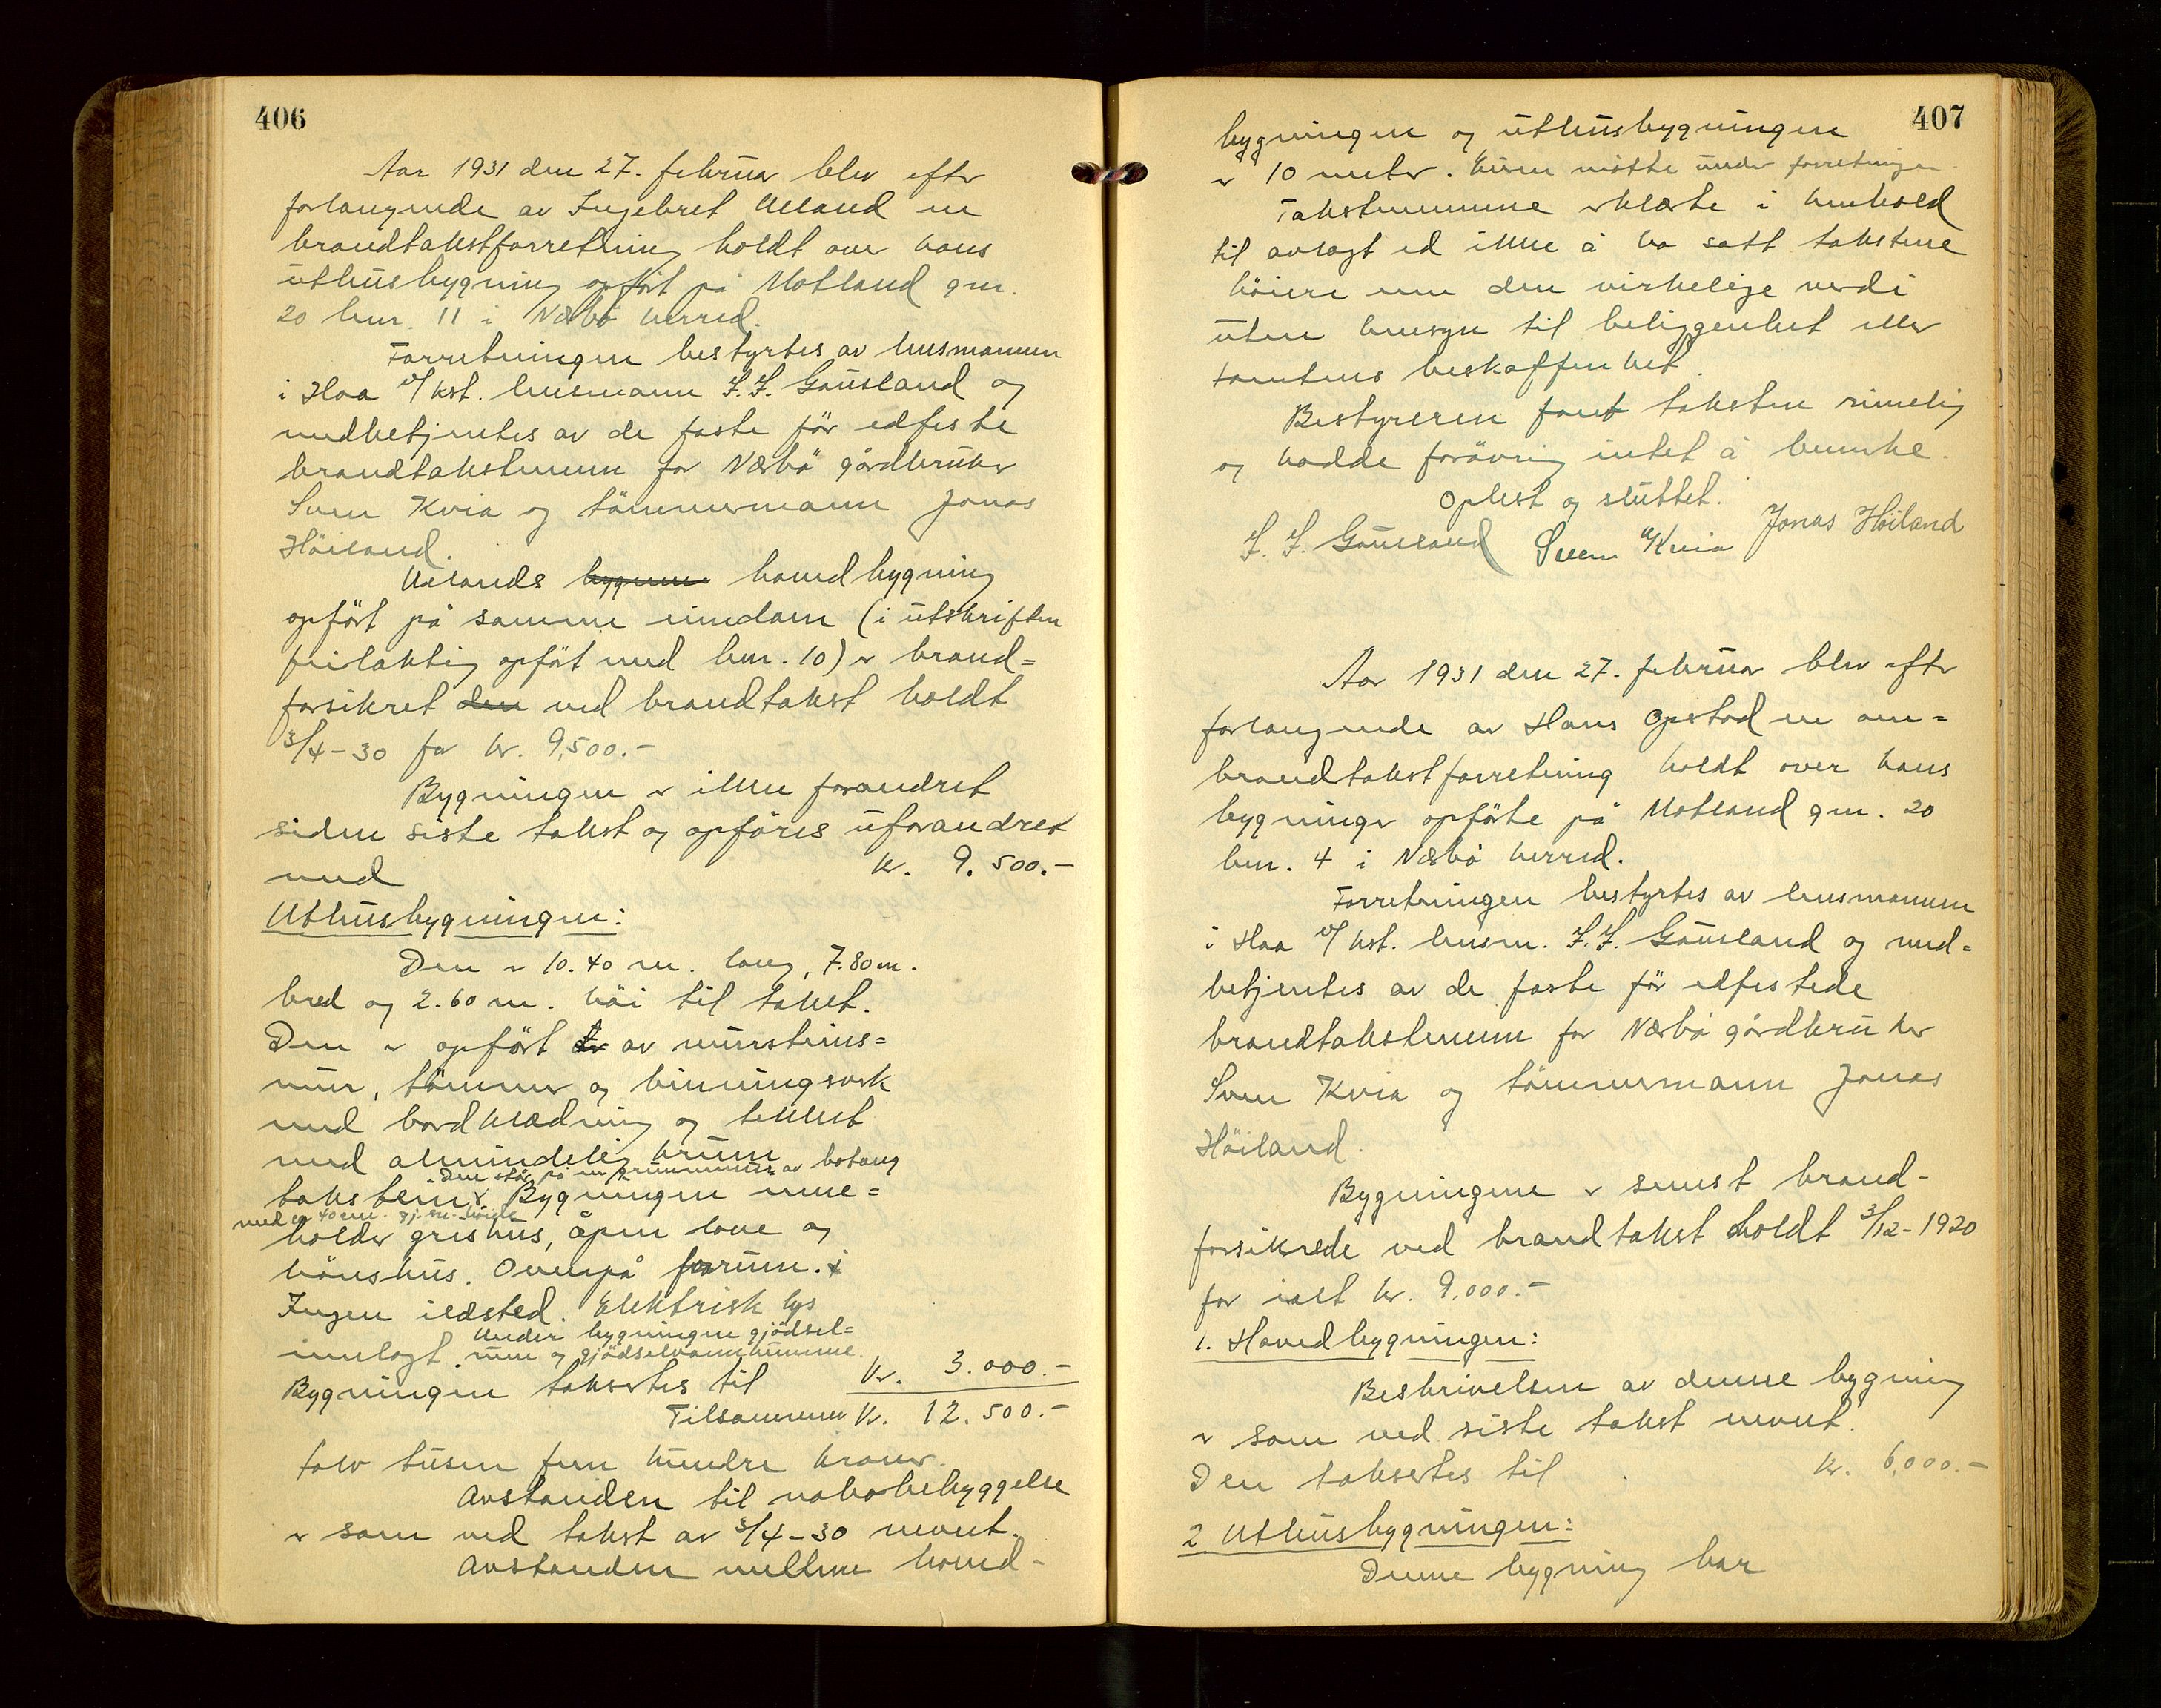 406
Aar 1931 den 27. februar blev efter
forlangende av Ingebret Ueland en
brandtakstforretning holdt over hans
uthusbygning opført på Motland gnr.
20 bnr. 11 i Nærbø herred.
Forretningen bestyrtes av lensmannen
i Haa v/ kst. lensmann F. F. Gausland og
medbetjentes av de faste før edfeste
brandtakstmenn for Nærbø gårdbruker
Sven Kvia og tömmermann Jonas
Höiland.
Uelands bygnin hovedbygning
opfört på samme eiendom (i utskriften
feilaktig opfört med bnr. 10) er brand=
forsikret den ved brandtakst holdt
3/4-30 for kr. 9,500.-
Bygningen er ikke forandret
siden siste takst og opföres uforandret
med kr. 9.500.-
Uthusbygningen:
Den er 10.40 m. lang, 7.80 m.
bred og 2.60 m. höi til taket.
Den er opfört av murstens=
mur, tömmer og binningsverk
med bordklædning og tekket
med almindelig krum
Den står på en grunnmur av betong
takstein. Bygningen inne=
med ca 40 cm. gj.sn. höide
holder grishus, åpen love og
hönshus. Ovenpå forrum.
Ingen ildsted. Elektrisk lys
Under bygningen gjödsel=
innlagt. rum og gjödselvannkumme.
Bygningen taksertes til kr. 3.000.-
Tilsammen kr. 12.500.-
tolv tusen fem hundre kroner.
Avstanden til nabobebyggelse
er som ved takst av 3/4-30 nevnt.
Avstanden mellem hoved-
407
bygningen og uthusbygningen
er 10 meter. Eieren møtte under forretningen.
Takstmennene erklærte i henhold
til avlagt ed ikke å ha satt takstene
höiere enn den virkelige verdi
uten hensyn til beliggenhet eller
tomtens beskaffenhet.
Bestyreren fant taksten rimelig
og hadde forøvrig intet å bemerke.
Oplest og sluttet.
F. F. Gausland Sven Kvia Jonas Höiland
Aar 1931 den 27. februar blev efter
forlangende av Hans Opstad en om=
brandtakstforretning holdt over hans
bygninger opförte på Motland gnr. 20
bnr. 4 i Nærbø herred.
Forretningen bestyrtes av lensmannen
i Haa v/ kst. lensm. F. F. Gausland og med=
betjentes av de faste før edfestede
brandtakstmenn for Nærbø gårdbruker
Sven Kvia og tömmermann Jonas
Höiland.
Bygningene er senest brand-
forsikrede ved brandtakst holdt 3/12-1920
for ialt kr. 9.000.-
1. Hovedbygningen:
Beskrivelsen av denne bygning
er som ved siste takst nevnt.
Den taksertes til kr. 6,000.-
2 Uthusbygningen:
Denne bygning har